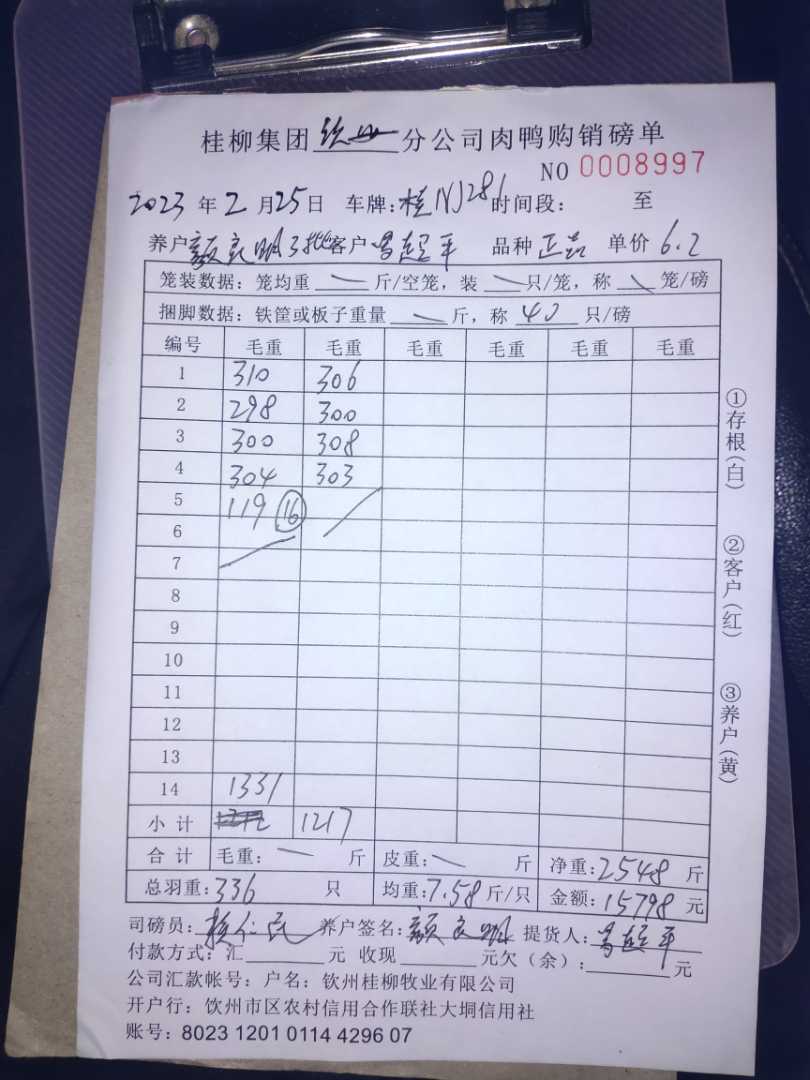 桂柳集团钦州分公司肉鸭购销磅单
NO 0008997
2023年2月25日 车牌:桂NJ286 时间段: 至
养户颜良明3批客户 超平 品种正品 单价6.2
笼装数据:笼均重 斤/空笼,装 只/笼,称 笼/磅
捆脚数据:铁筐或板子重量 斤,称40只/磅
编号 毛重 毛重 毛重 毛重 毛重 毛重
1 310 306
2 298 300
3 300 308
4 304 303
5 119 16
6
7
8
9
10
11
12
13
14 1331
小计 1217
合计 毛重: 斤 皮重: 斤 净重:2548斤
总羽重:336只 均重:7.58斤/只 金额:15798元
司磅员: 仁民 养户签名:颜良明 提货人: 超平
付款方式:汇 元 收现 元欠(余): 元
公司汇款帐号:户名:钦州桂柳牧业有限公司
开户行:饮州市区农村信用合作联社大垌信用社
账号:8023 1201 0114 4296 07
①存根(白)
②客户(红)
③养户(黄)